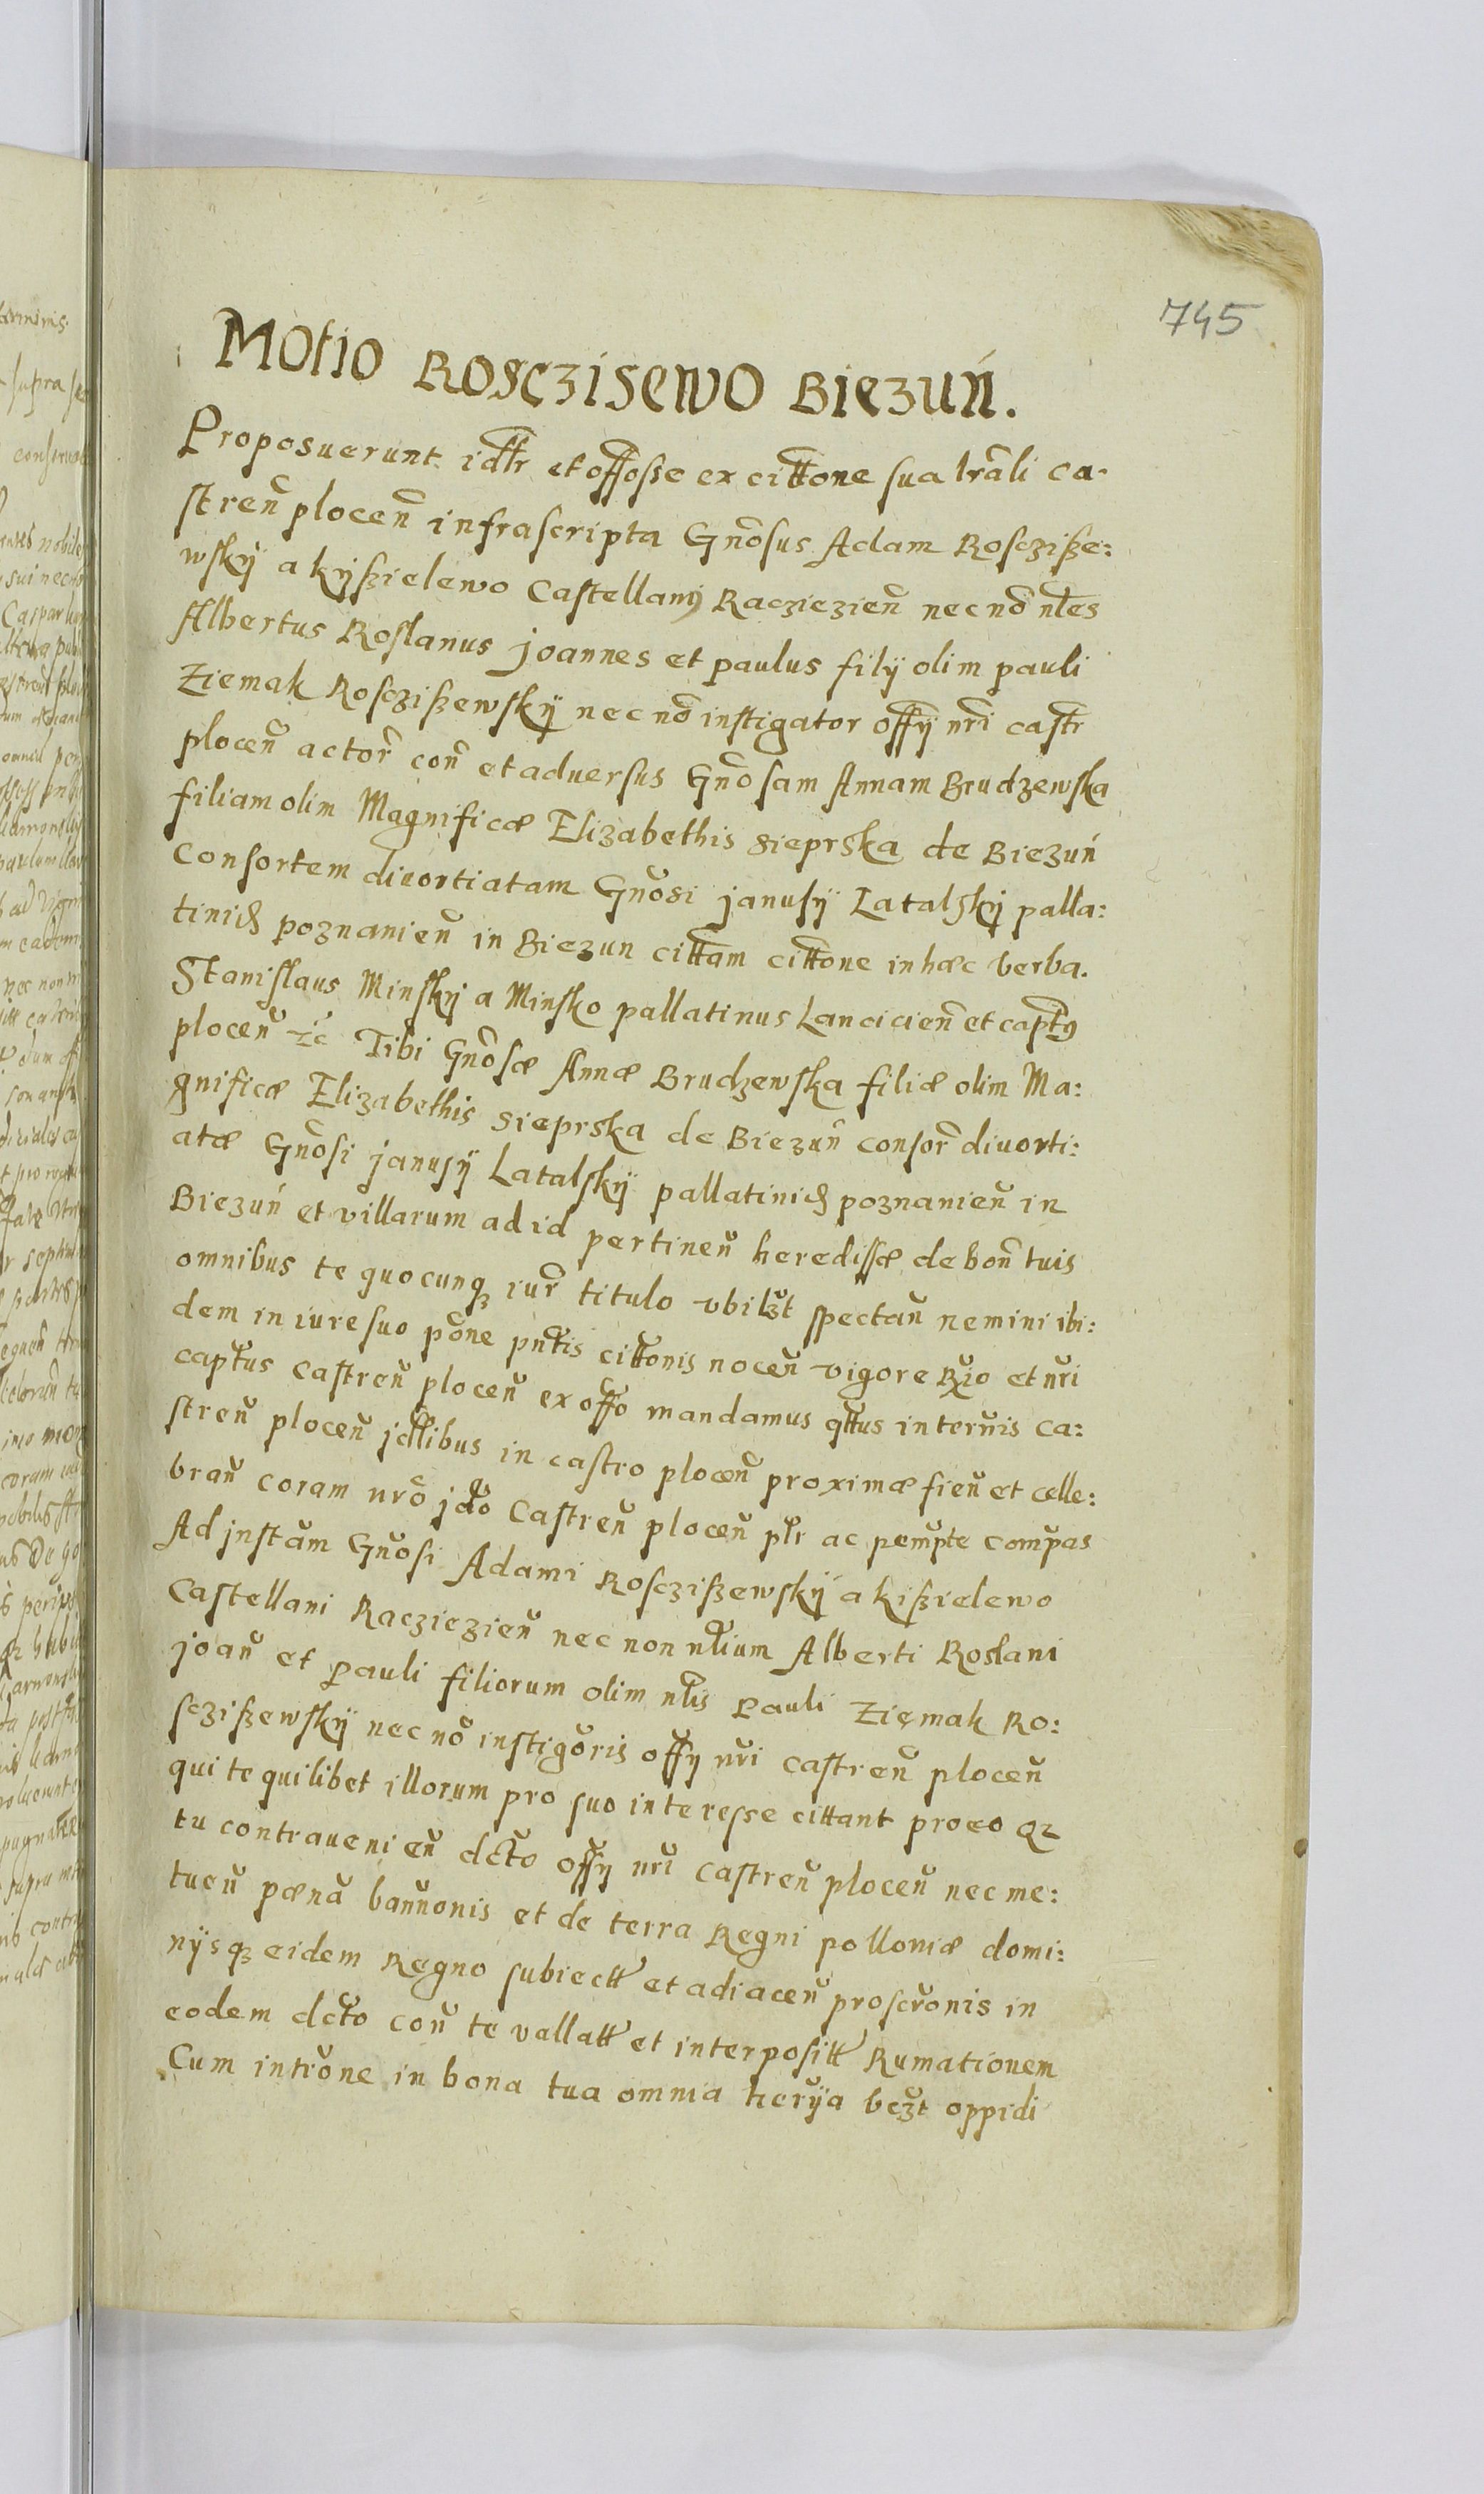 745
Motio Rosczisewo Biezuń.
Proposuerunt idtr et offosse ex cittone sua lrali ca-
streñ ploceñ infrascripta Gnosus Adam Rosczisze:
wskÿ a kÿszielewo Castellanus Raczieziẽn nec nõ nles
Albertus Roslanus joannes et paulus filÿ olim pauli
Ziemak Rosczißewskÿ nec nõ instigator offÿ nri castr
ploceñ actor coñ et aduersus Gnosam Annam Brudzewska
filiam olim Magnificæ Elizabethis sieprska de Biezuń
Consortem diuortiatam Gnosi janusÿ Latalskÿ palla:
tinid poznanieñ in Biezun cittam cittone in hæc verba.
Stanislaus Minskÿ a Minsko pallatinus Lancicieñ et captus
ploceñ etc Tibi Gnosæ Annæ Brudzewska filiæ olim Ma:
gnificæ Elizabethis sieprska de Biezuń consor diuorti:
atæ Gnosi janusÿ Latalskÿ pallatinid poznanieñ in
Biezuń et villarum ad id pertineñ heredissæ de boñ tuis
omnibus te quocunq iur titulo vbilzt spectañ nemini ibi:
dem in iure suo põne pntis cittonis noceñ vigore Rgio et nri
captus castreñ ploceñ ex offo mandamus qttus in termis ca:
streñ ploceñ jdllibus in castro ploceñ proximæ fieñ et celle:
brañ coram nrõ jdo Castreñ ploceñ plr ac pempte compas
Ad jnstam Gnosi Adami Rosczißewskÿ a kißielewo
Castellani Raczieziẽn nec non nlium Alberti Roslani
joañ et pauli filiorum olim nlis pauli Ziemak Ro:
sczißewskÿ nec nõ instigoris offÿ nri castreñ ploceñ
qui te quilibet illorum pro suo interesse cittant pro eo qz
tu contraueni eñ dcto offÿ nri castreñ ploceñ nec me:
tueñ pæna bannonis et de terra Regni polloniæ domi:
nÿsq eidem Regno subiectt et adiaceñ proscronis in
eodem dcto coñ te vallatt et interpositt Rumationem
Cum intrõne in bona tua omnia herÿa bezt oppidi